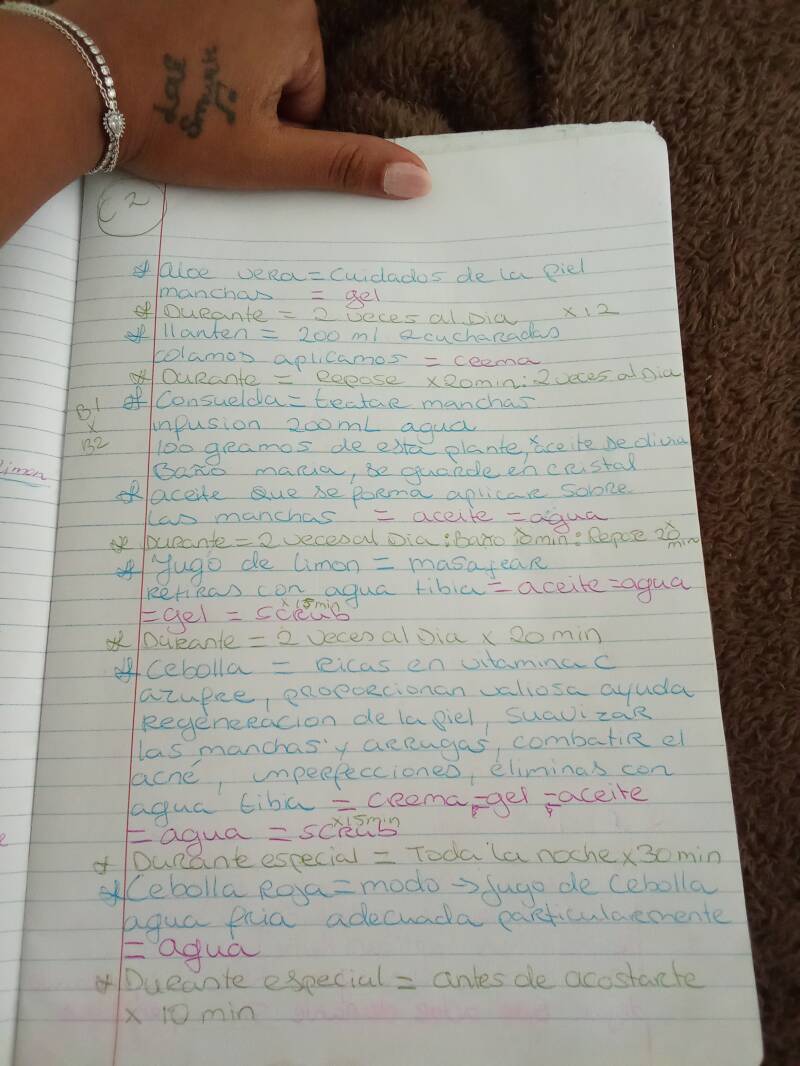 C2
* Aloe vera = Cuidados de la piel
manchas = gel
* Durante = 2 veces al Dia x 12
* llanten = 200 ml 2 cucharadas
colamos aplicamos = crema
* Durante = Repose x 20 min : 2 veces al Dia
* Consuelda = tratar manchas
B1
x
B2
infusion 200 mL agua
100 gramos de esta planta, x aceite de
Baño maria, se guarde en cristal
* aceite que se forma aplicar sobre
las manchas = aceite = agua
* Durante = 2 veces al Dia : Baño min : Repose 20 min
limon
* Jugó de limon = masajear
Retiras con agua tibia = aceite = agua
= gel = scrub x 15 min
* Durante = 2 veces al Dia x 20 min
* Cebolla = Ricas en vitamina C
azufre, proporcionan valiosa ayuda
Regeneracion de la piel, suavizar
las manchas y arrugas, combatir el
acné, imperfecciones, eliminas con
agua tibia = crema = gel = aceite
= agua = scrub x 15 min
* Durante especial = Toda la noche x 30 min
* Cebolla Roja = modo → jugo de cebolla
agua fria adecuada particularmente
= agua
* Durante especial = antes de acostarte
x 10 min